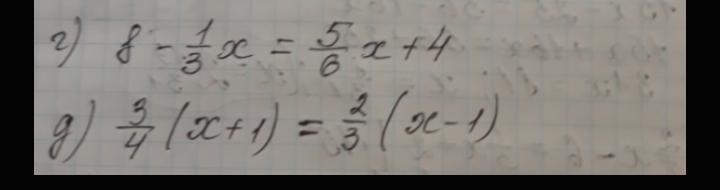 г) 8 - 1/3 x = 5/6 x + 4
д) 3/4 (x + 1) = 2/3 (x - 1)